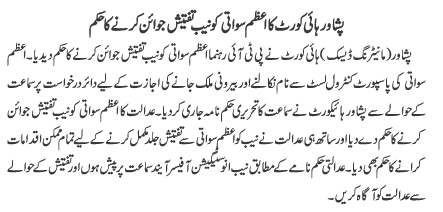 پشاور ہائی کورٹ کا اعظم سواتی کو نیب تفتیش جوائن کرنے کا حکم
پشاور (مانیٹرنگ ڈیسک) ہائی کورٹ نے پی ٹی آئی رہنما اعظم سواتی کو نیب تفتیش جوائن کرنے کا حکم دیدیا۔ اعظم
سواتی کی پاسپورٹ کنٹرول لسٹ سے نام نکالنے اور بیرونی ملک جانے کی اجازت کے لیے دائر درخواست پر سماعت
کے حوالے سے پشاور ہائیکورٹ نے سماعت کا تحریری حکم نامہ جاری کر دیا۔ عدالت کا اعظم سواتی کو نیب تفتیش جوائن
کرنے کا حکم دے دیا اور ساتھ ہی عدالت نے نیب کو اعظم سواتی سے تفتیش جلد مکمل کرنے کے لیے تمام ممکن اقدامات
کرانے کا حکم بھی دیا۔ عدالتی حکم نامے کے مطابق نیب انوسٹیگیشن آفیسر آیند سماعت پر پیش ہوں اور تفتیش کے حوالے
سے عدالت کو آگاہ کریں۔